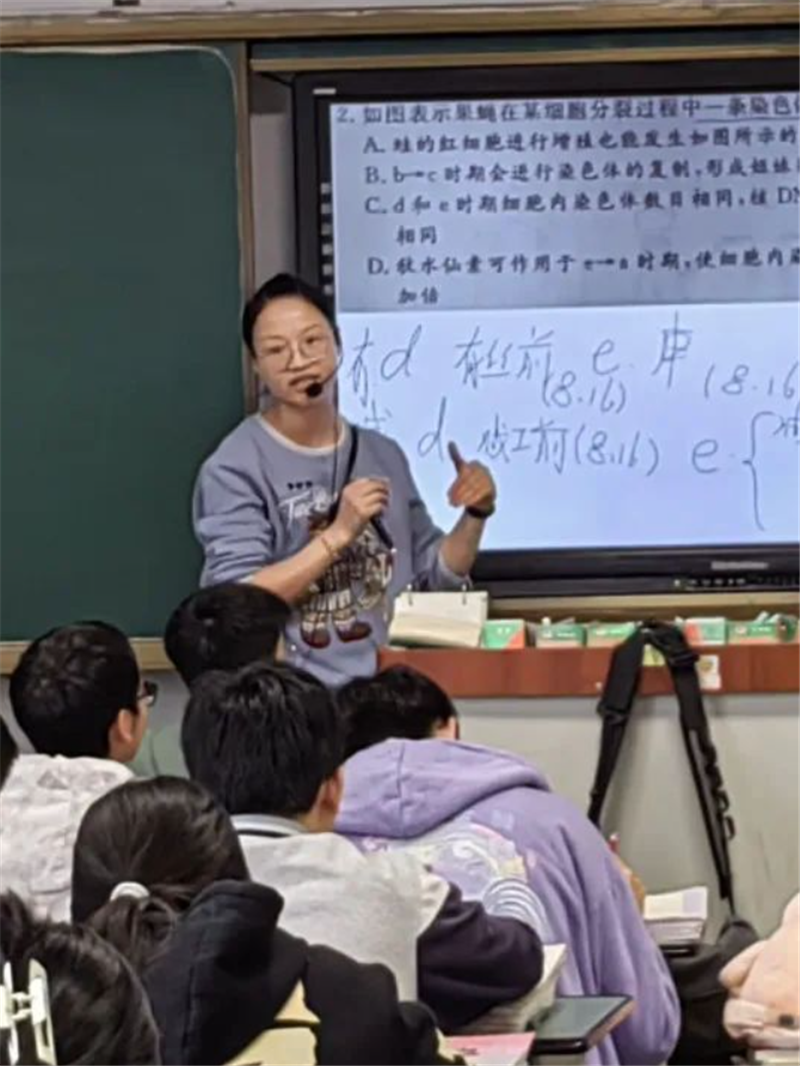 2. 如图表示果蝇在某细胞分裂过程中一条染色体
A. 蛙的红细胞进行增殖也能发生如图所示的
B. b→c 时期会进行染色体的复制,形成姐妹
C. d 和 e 时期细胞内染色体数目相同,核 DN
相同
D. 秋水仙素可作用于 e→a 时期,使细胞内染
加倍
有 d 有丝前 e. 中
(8.16) (8.16
d 减I前(8.16) e. {